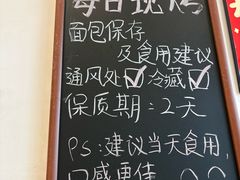 每日现烤
面包保存
及食用建议
通风处☑冷藏☑
保质期:2天
PS:建议当天食用,
口感更佳